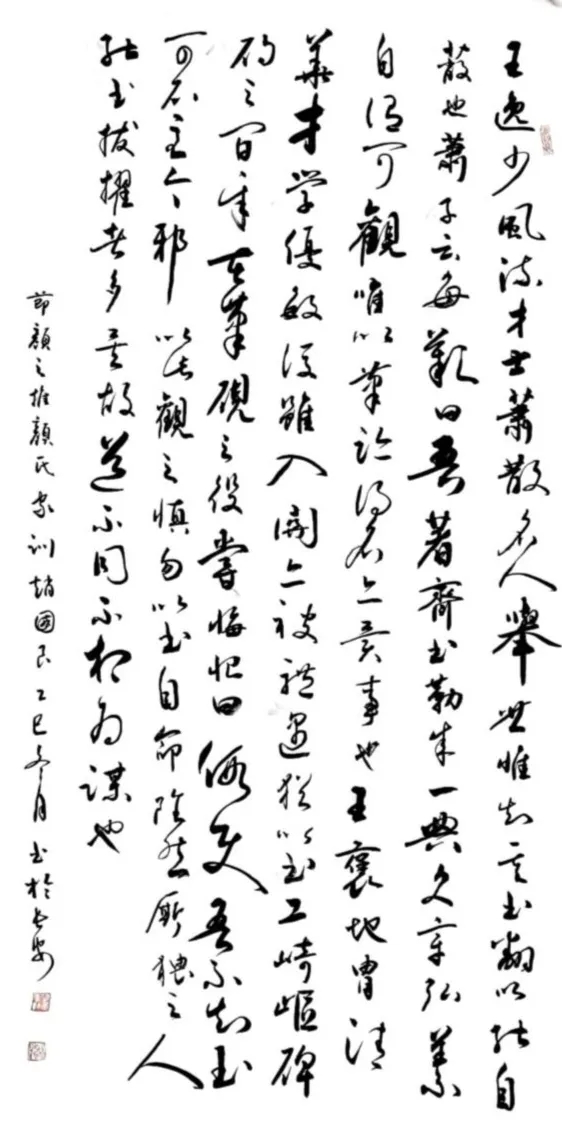 王逸少風流才士蕭散名人舉世惟知其书翻以能自
蔽也蕭子云每歎曰吾著齊书勒成一典文章弘義
自謂可觀唯以筆迹得名亦異事也王褒地胄清
華才学優敏後雖入関亦被禮遇猶以书工崎嶇碑
碣之间辛苦筆硯之役嘗悔恨曰假使吾不知书
可不至今日邪以此觀之慎勿以书自命雖然厮猥之人
能书拔擢者多矣故道不同不相为謀也
節顏之推顏氏家訓趙國良乙巳冬月书於長安